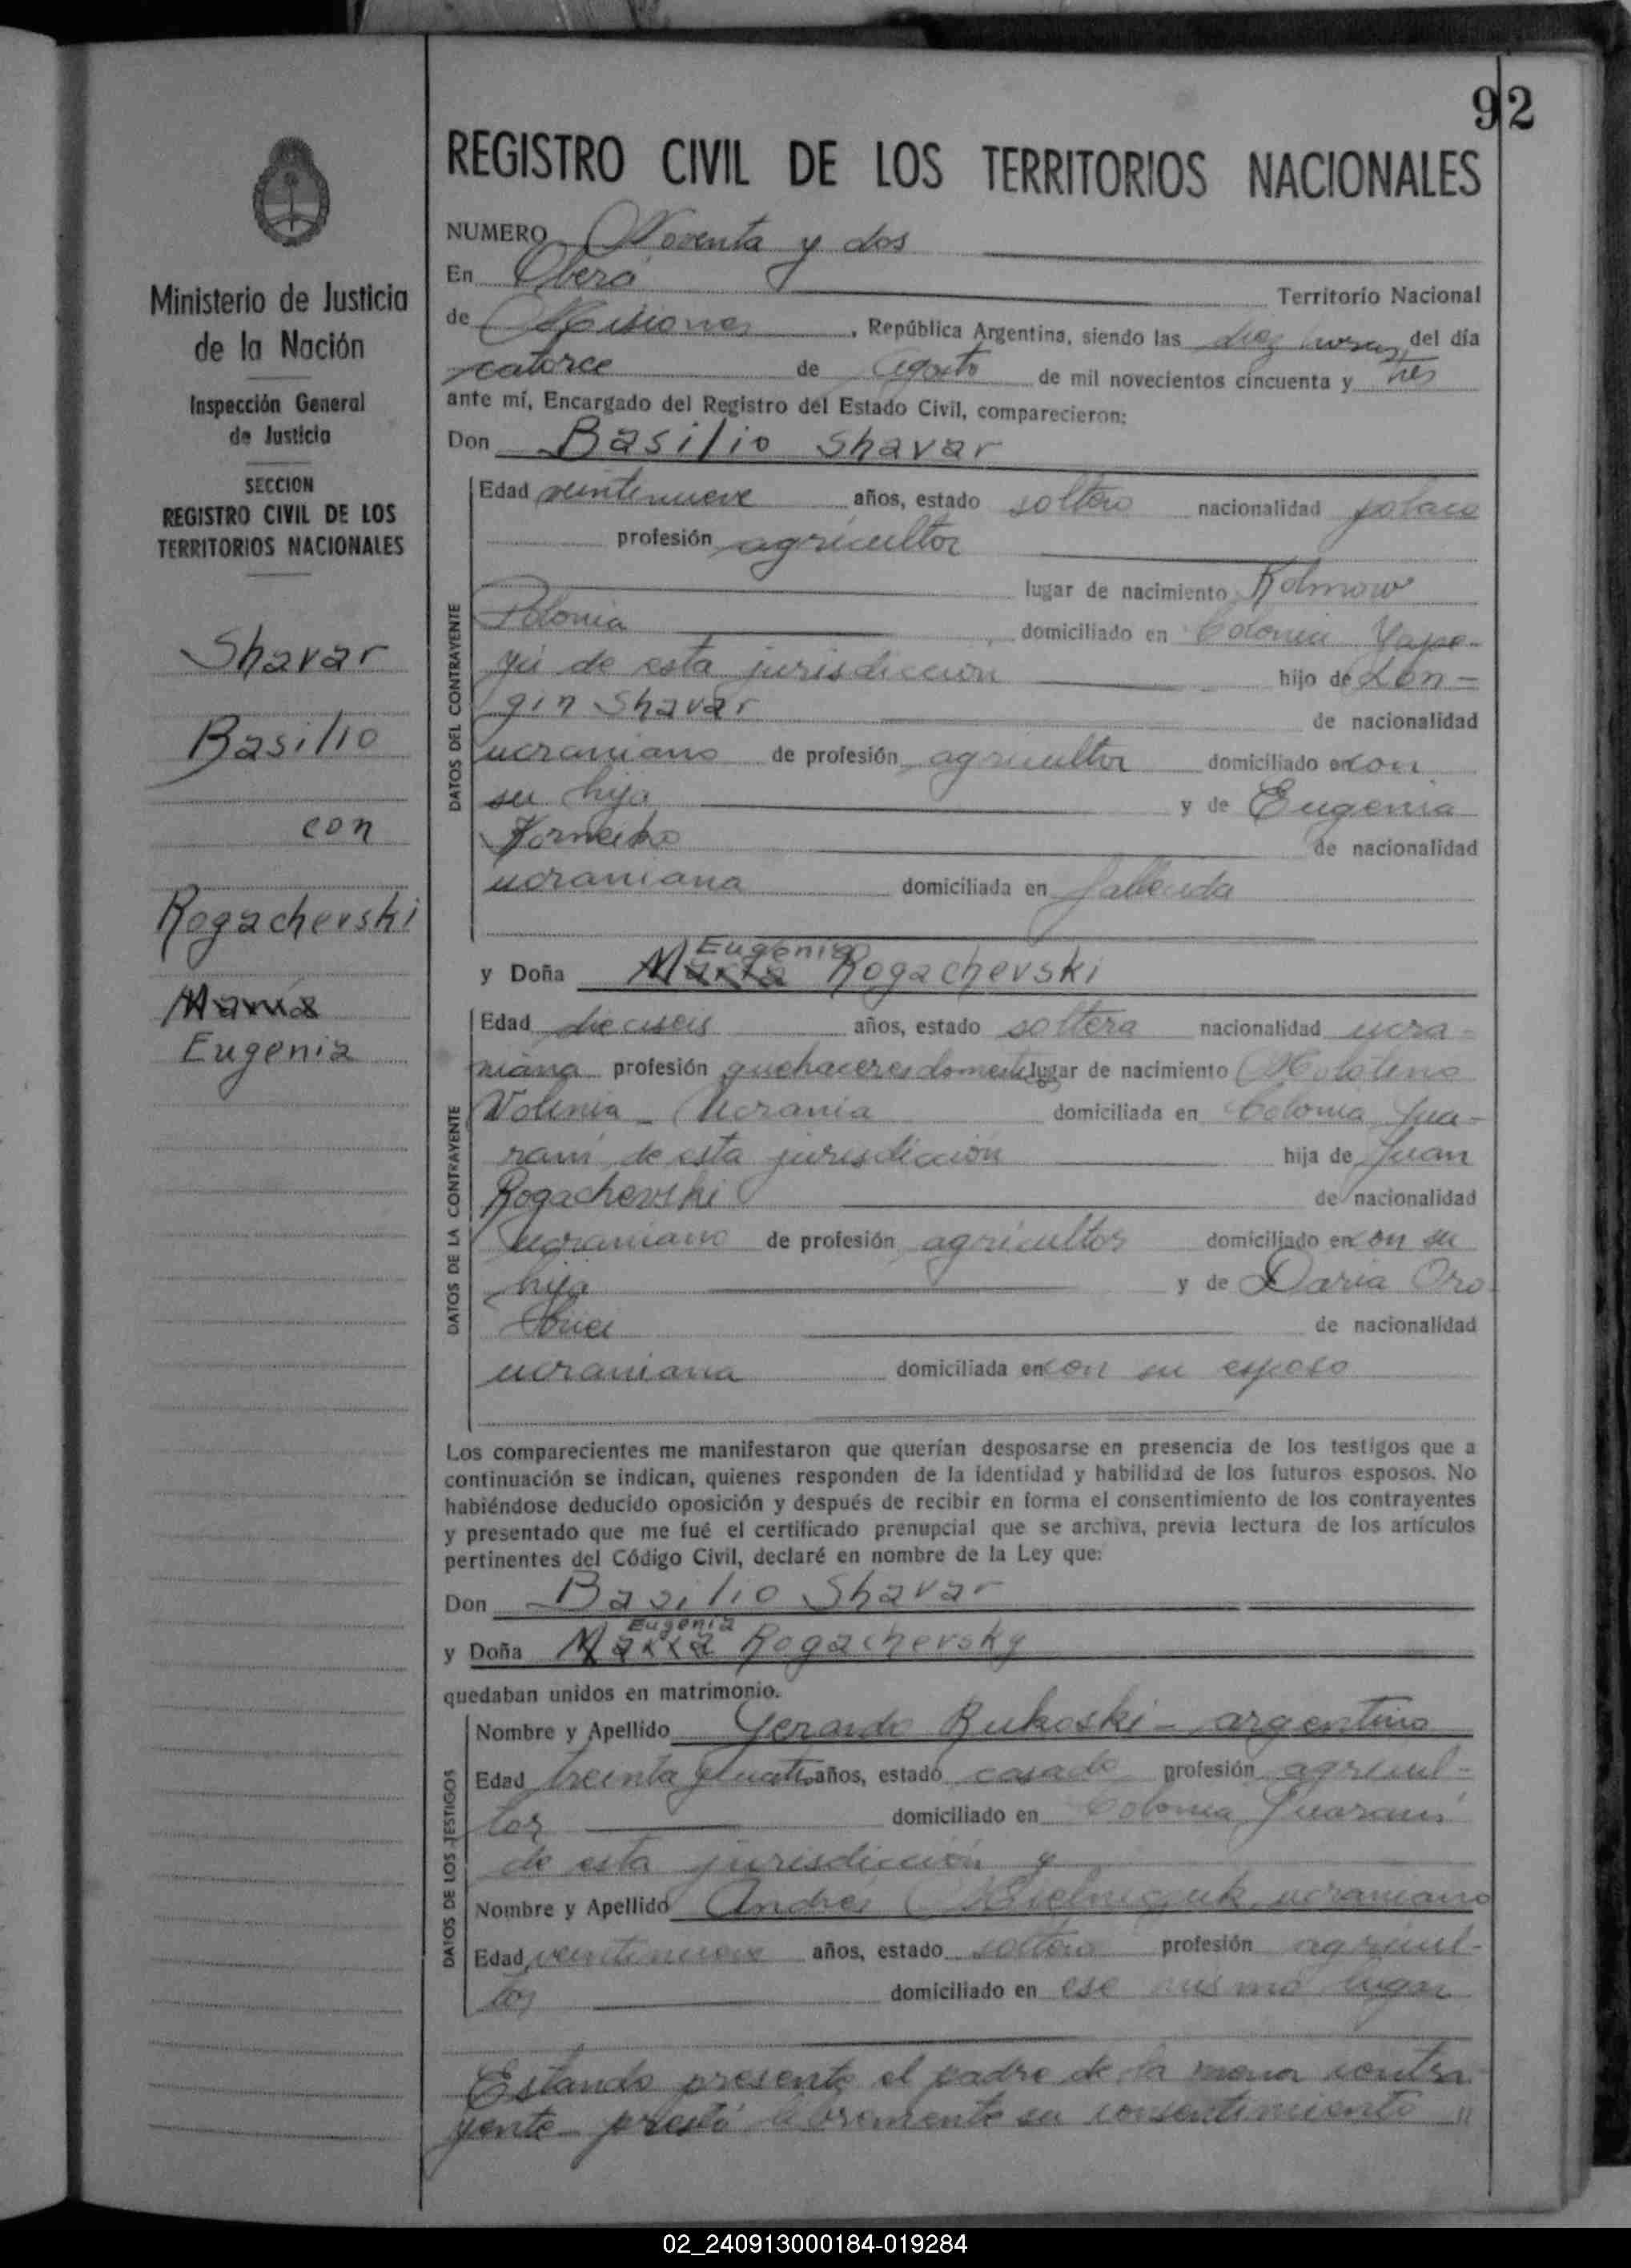 92
REGISTRO CIVIL DE LOS TERRITORIOS NACIONALES
NUMERO Noventa y dos
En Oberá Territorio Nacional
de Misiones, República Argentina, siendo las diez horas, del día
catorce de agosto de mil novecientos cincuenta y tres
ante mí, Encargado del Registro del Estado Civil, comparecieron:
Don Basilio Shavar
DATOS DEL CONTRAYENTE
Edad veintenueve años, estado soltero nacionalidad polaco
profesión agricultor
lugar de nacimiento Kolmow
Polonia domiciliado en Colonia Yape-
yú de esta jurisdiccion hijo de Lon=
gin Shavar de nacionalidad
ucraniano de profesión agricultor domiciliado en con
su hija y de Eugenia
de nacionalidad
ucraniana domiciliada en fallecida
y Doña Maria Eugenia Rogachevski
DATOS DE LA CONTRAYENTE
Edad dieciseis años, estado soltera nacionalidad ucra-
niana profesión quehaceres domesticos lugar de nacimiento
Volinia - Ucrania domiciliada en Colonia Gua-
raní de esta jurisdicción hija de Juan
Rogachevski de nacionalidad
ucraniano de profesión agricultor domiciliado en con su
hija y de Daria Oro
de nacionalidad
ucraniana domiciliada en con su esposo
Los comparecientes me manifestaron que querían desposarse en presencia de los testigos que a
continuación se indican, quienes responden de la identidad y habilidad de los futuros esposos. No
habiéndose deducido oposición y después de recibir en forma el consentimiento de los contrayentes
y presentado que me fué el certificado prenupcial que se archiva, previa lectura de los artículos
pertinentes del Código Civil, declaré en nombre de la Ley que:
Don Basilio Shavar
y Doña Maria Eugenia Rogachevsky
quedaban unidos en matrimonio.
DATOS DE LOS TESTIGOS
Nombre y Apellido Gerardo Rukoski - argentino
Edad treinta y cuatro años, estado casado profesión agricul-
tor domiciliado en Colonia Guaraní
de esta jurisdicción y
Nombre y Apellido Andres ucraniano
Edad veintinueve años, estado soltero profesión agricul-
tor domiciliado en ese mismo lugar
Estando presente el padre de la menor contra-
yente prestó libremente su consentimiento "
Ministerio de Justicia
de la Nación
Inspección General
de Justicia
SECCION
REGISTRO CIVIL DE LOS
TERRITORIOS NACIONALES
Shavar
Basilio
con
Rogachevski
Maria
Eugenia
02_240913000184-019284